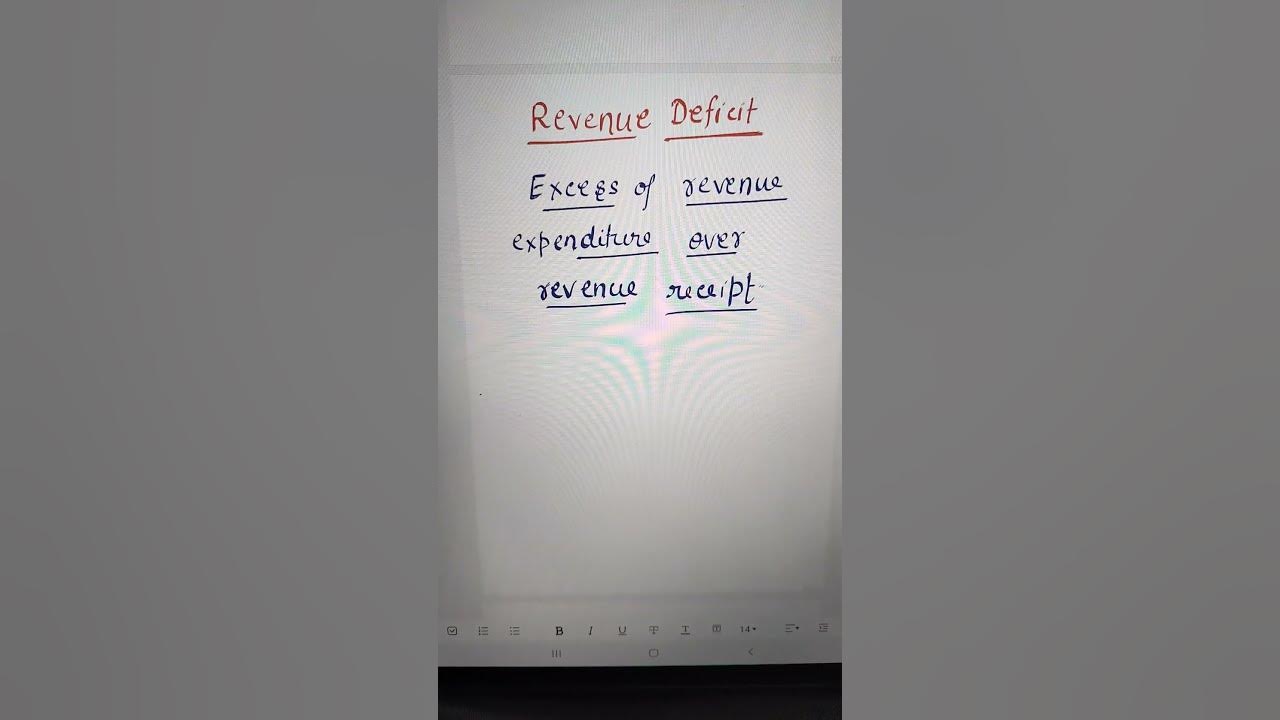 Revenue Deficit
Excess of revenue
expenditure over
revenue receipt
B I U T T T 14